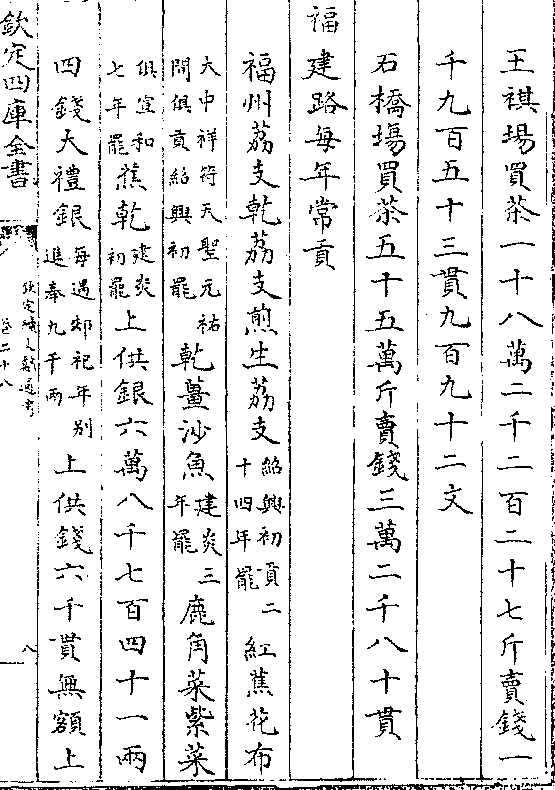 王祺場買茶一十八萬二千二百二十七斤賣錢一
千九百五十三貫九百九十二文
石橋場買茶五十五萬斤賣錢三萬二千八十貫
福建路每年常貢
福州荔支乾荔支煎生荔支紹興初貢二十四年罷紅蕉花布
大中祥符天聖元祐間俱貢紹興初罷乾薑沙魚建炎三年罷鹿角菜紫菜
俱宣和七年罷蕉乾建炎初罷上供銀六萬八千七百四十一兩
四錢大禮銀每遇郊祀年別進奉九千兩上供錢六千貫無額上
欽定四庫全書
欽定續文獻通考
卷二十八
八